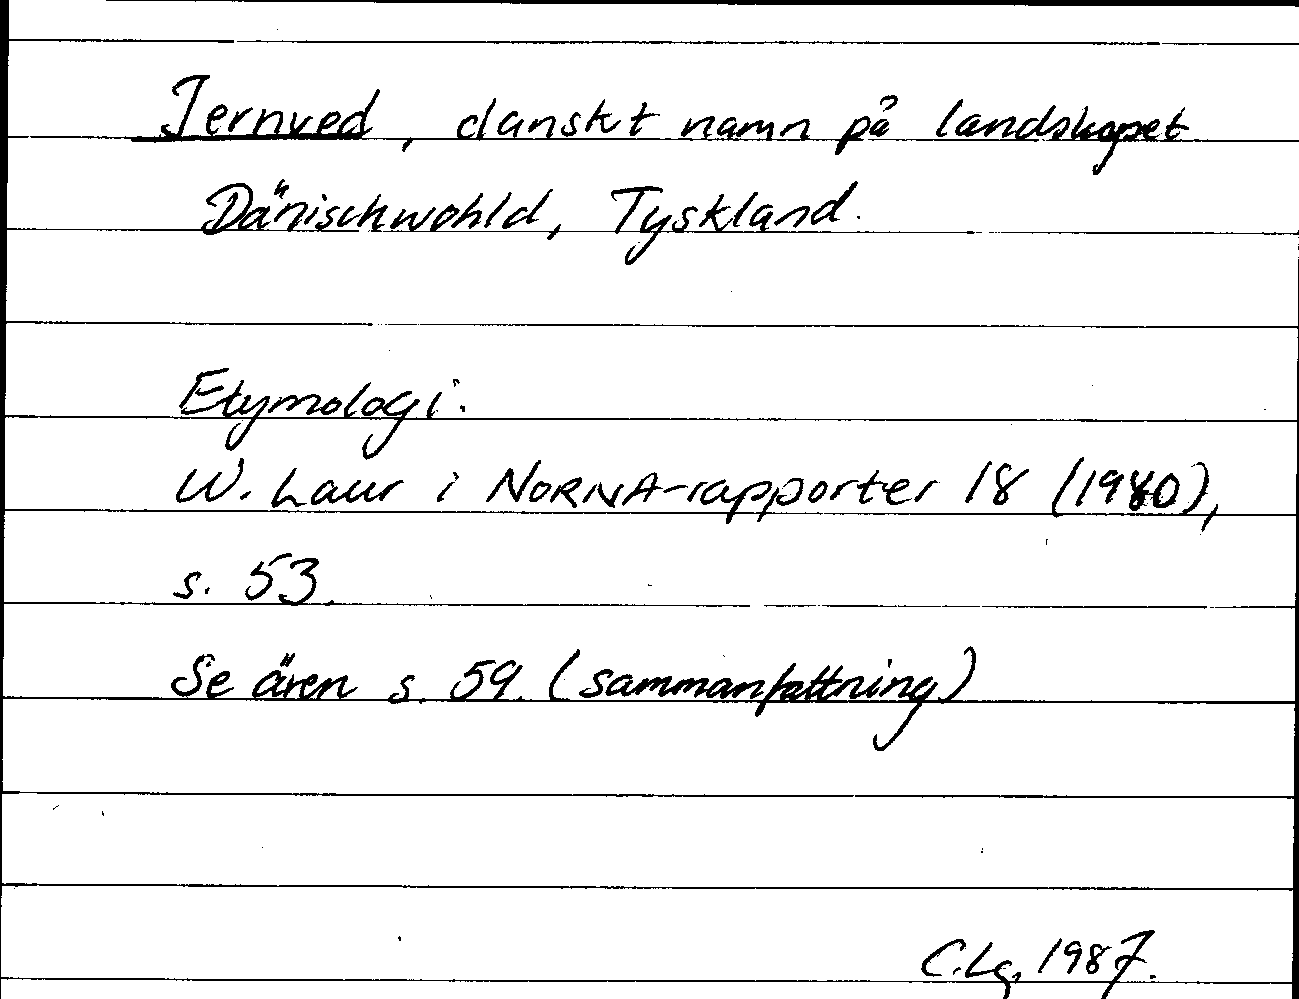 Jernved, danskt namn på landskapet
Dänischwohld, Tyskland.
Etymologi.
W. Laur i NORNA-rapporter 18 (1980),
s. 53.
Se även s. 59. (sammanfattning)
C.Lg. 1987.